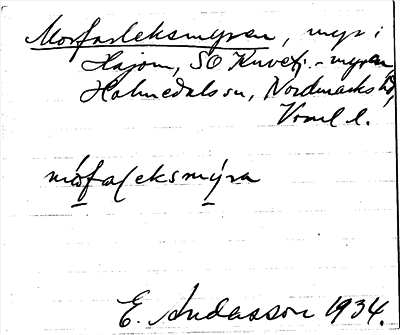 Morfarleksmyren, myr i
Hajom, SO Kuvetj.-myren
Holmedals sn, Nordmarks hd,
Vrml l.
mófaleksmýra
E. Andersson 1934.